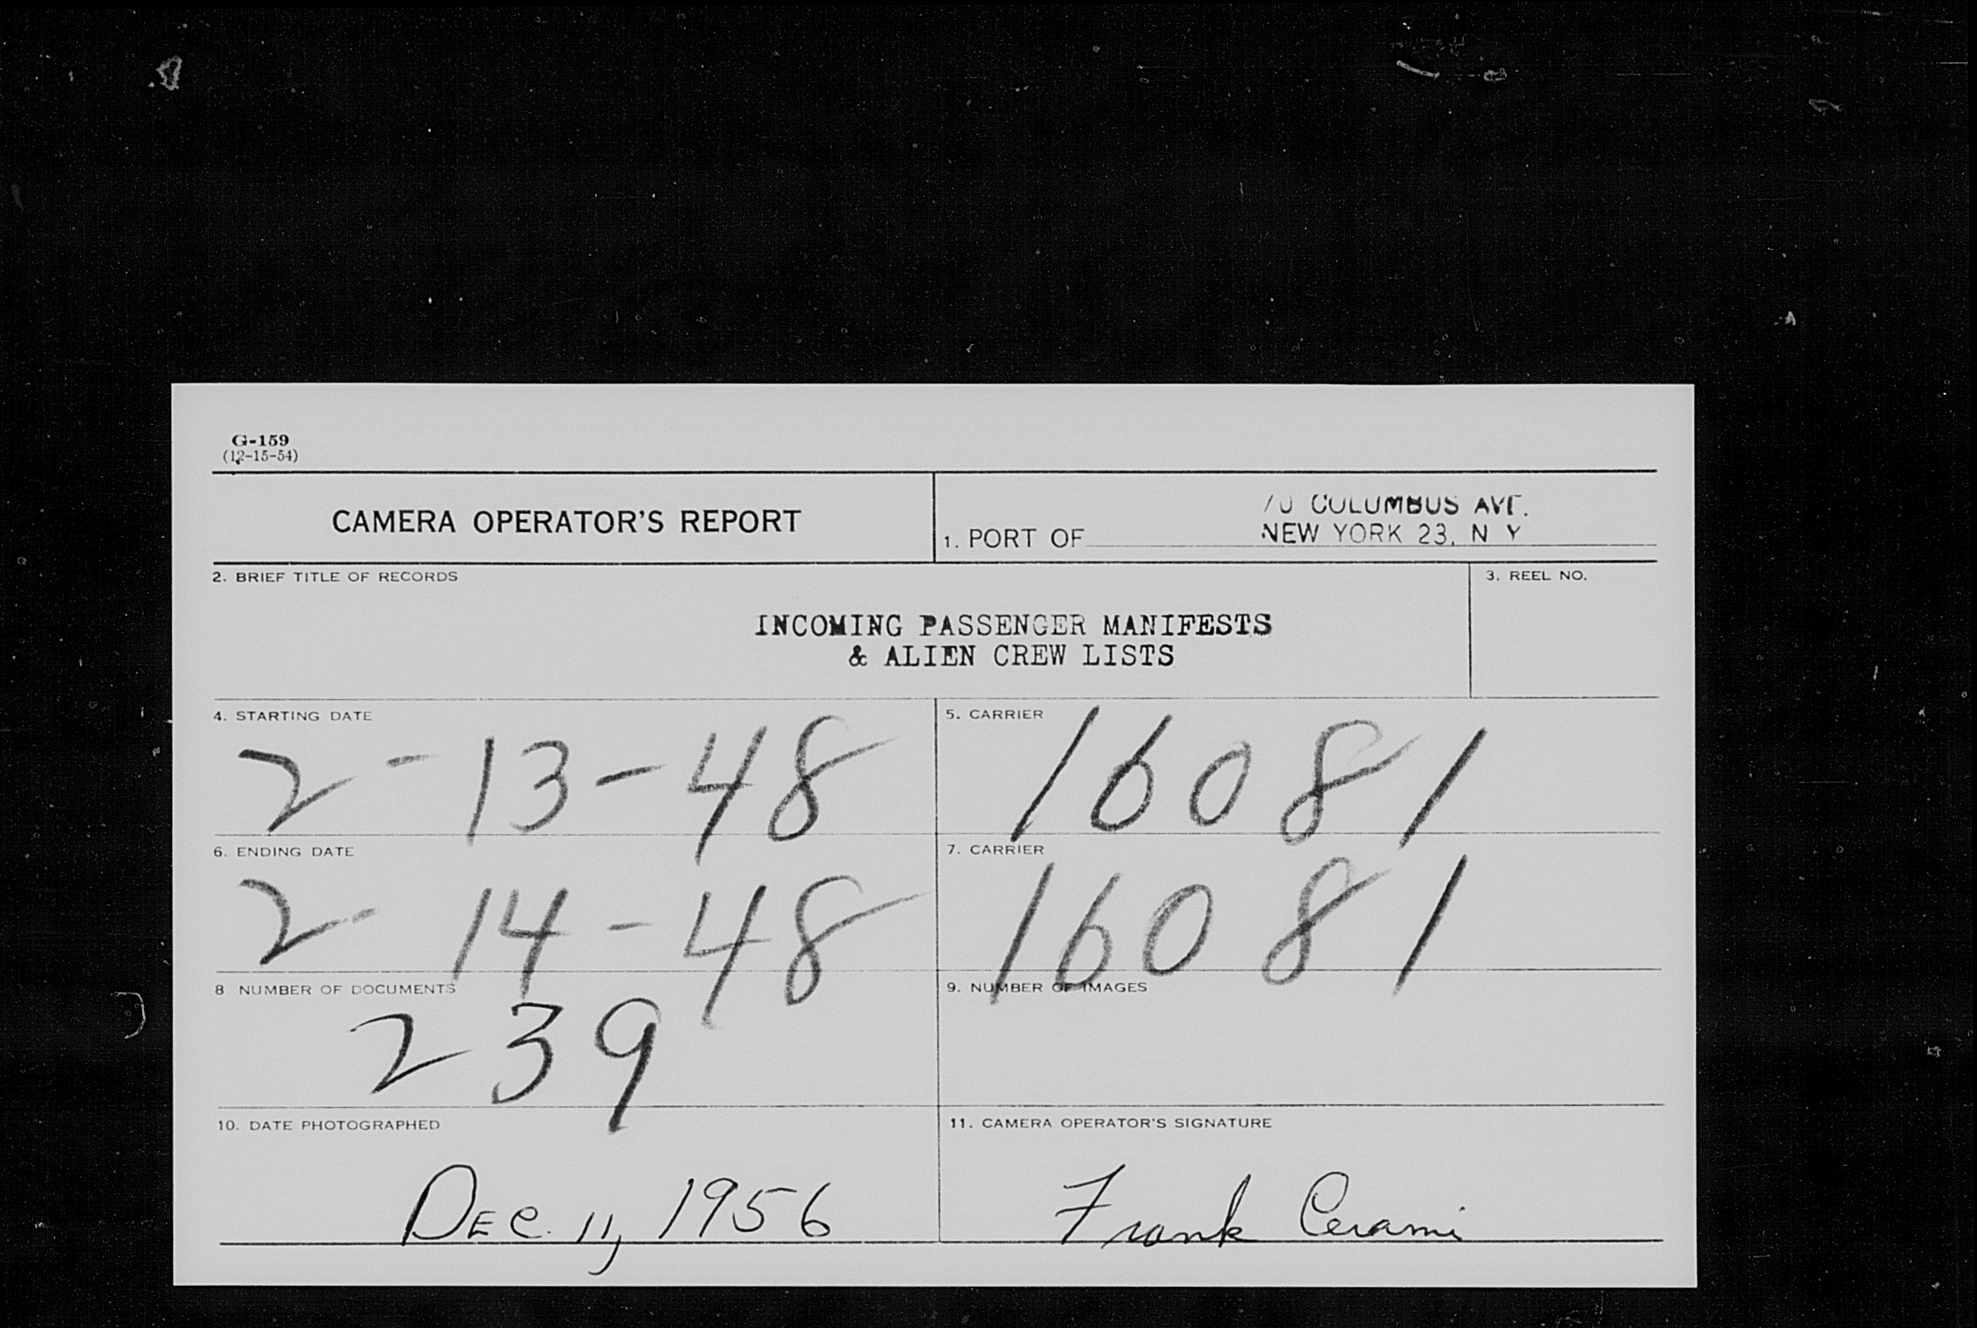 G-159
(12-15-54)
CAMERA OPERATOR'S REPORT
1. PORT OF
70 COLUMBUS AVE.
NEW YORK 23, N Y
2. BRIEF TITLE OF RECORDS
3. REEL NO.
INCOMING PASSENGER MANIFESTS
& ALIEN CREW LISTS
4. STARTING DATE
2-13-48
5. CARRIER
16081
6. ENDING DATE
2-14-48
7. CARRIER
16081
8 NUMBER OF DOCUMENTS
239
9. NUMBER OF IMAGES
10. DATE PHOTOGRAPHED
DEC. 11, 1956
11. CAMERA OPERATOR'S SIGNATURE
Frank Cerami